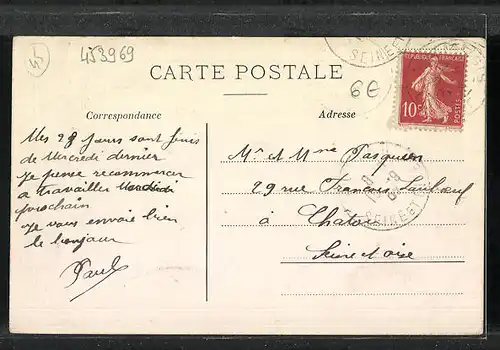 45
453969
6€
SEINE ET
REPUBLIQUE FRANÇAISE
10c
POSTES
CARTE POSTALE
Correspondance
Adresse
Mes 28 jours sont finis
de Mercredi dernier
Je pense recommencer
à travailler Mercredi
prochain
Je vous envoie bien
le bonjour
Paul
Mr et Mme Pasquier
29 rue François
à Chatou
Seine et oise
SEINE ET